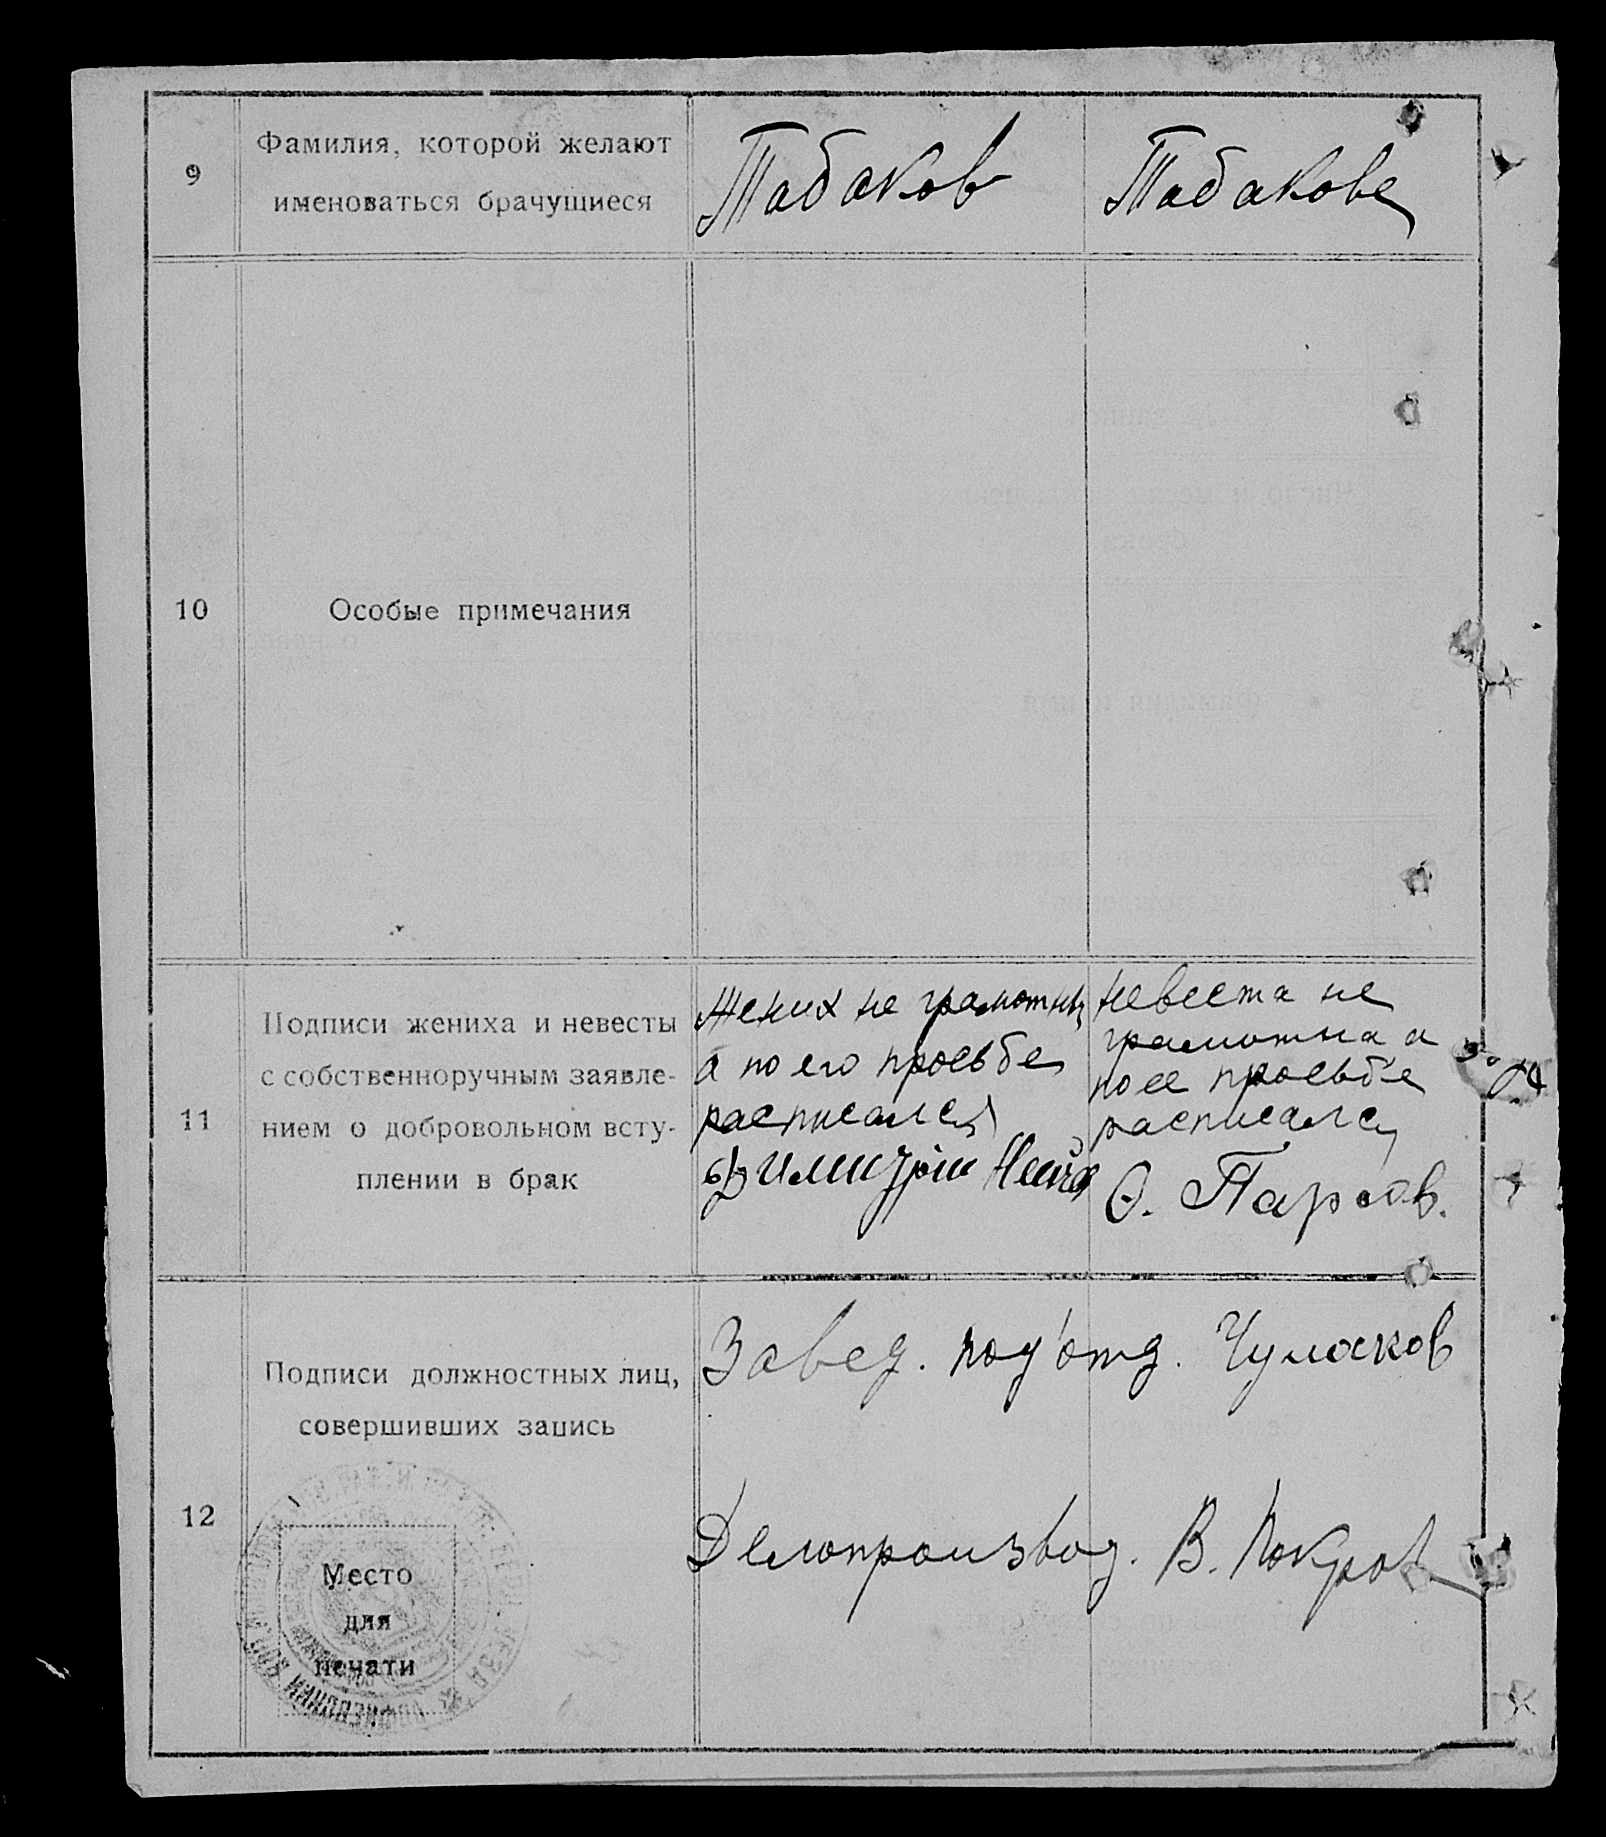 9
Фамилия, которой желают
именоваться брачущиеся
Табаков
Табакова
10
Особые примечания
11
Подписи жениха и невесты
с собственноручным заявле-
нием о добровольном всту-
плении в брак
Жених не грамотный
а по его проевбе
расписался
Невеста не
грамотна а
по ее проевбе
расписался
Ѳ. Паров.
12
Подписи должностных лиц,
совершивших запись
Место
для
печати
Завед. под'отд. Чумаков
Делопроизвод. В. Покров